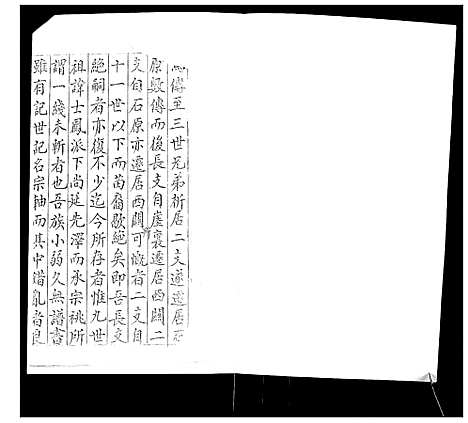 傳至三世兄弟析居二支遂遷居石
原數傳而後長支自崖裏遷居西關二
支自石原亦遷居西關可慨者二支自
十一世以下而苗裔歇絕矣即吾長支
絕嗣者亦復不少迄今所存者惟九世
祖諱士鳳派下尚延先澤而承宗祧所
謂一綫未斬者也吾族小弱久無譜書
雖有記世記名宗軸而其中錯亂者良